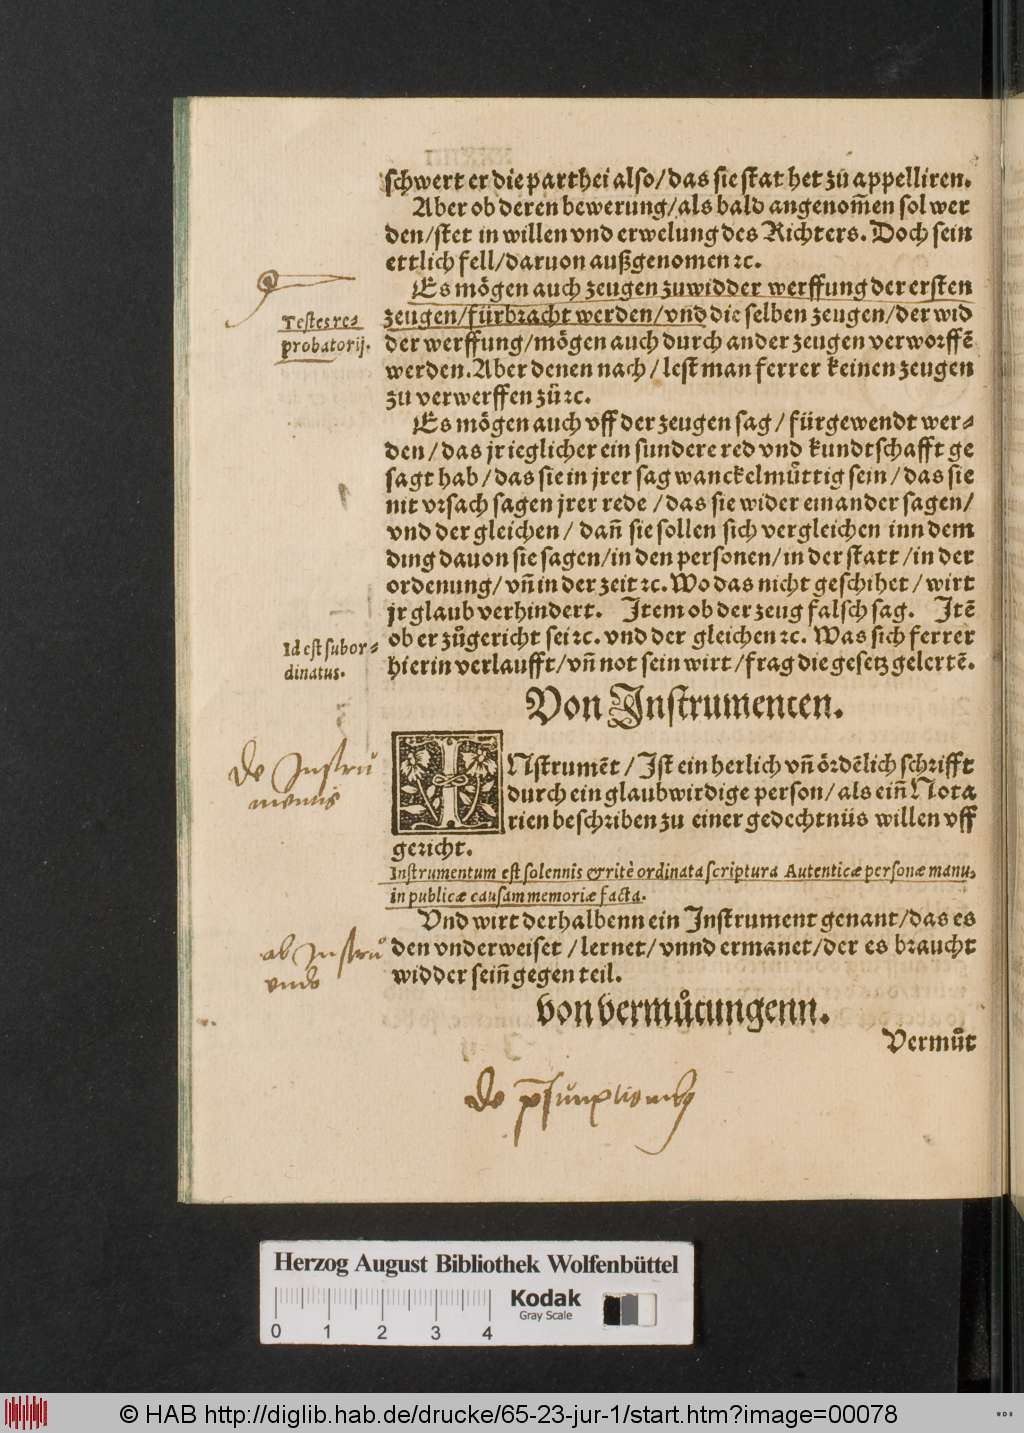 schwert er die parthei also/das sie stat het zů appelliren.
Aber ob deren bewerung/als bald angenom̄en sol wer
den/stet in willen vnd erwelung des Richters. Doch sein
ettlich fell/daruon außgenomen ꝛc.
Es mögen auch zeugen zuwidder werffung der ersten
zeugen/fürbracht werden/vnd die selben zeugen/der wid
Testes re-
probatorij.
der werffung/mögen auch durch ander zeugen verworffē
werden. Aber denen nach/lest man ferrer keinen zeugen
zu verwerffen zů ꝛc.
Es mögen auch vff der zeugen sag/fürgewendt wer-
den/das jr ieglicher ein sundere red vnd kundtschafft ge
sagt hab/das sie in jrer sag wanckelmůttig sein/das sie
nit vrsach sagen jrer rede/das sie wider einander sagen/
vnd der gleichen/dan̄ sie sollen sich vergleichen inn dem
ding dauon sie sagen/in den personen/in der statt/in der
ordenung/vn̄ in der zeit ꝛc. Wo das nicht geschihet/wirt
jr glaub verhindert. Item ob der zeug falsch sag. Itē
ob er zůgericht sei ꝛc. vnd der gleichen ꝛc. Was sich ferrer
Id est subor-
dinatus.
hierin verlaufft/vn̄ not sein wirt/frag die gesetz gelertē.
Von Instrumenten.
INstrumēt/Ist ein herlich vn̄ ördēlich schrifft
durch ein glaubwirdige person/als ein̄ Nota
rien beschriben zu einer gedechtnüs willen vff
gericht.
De Instru
mentis
Instrumentum est solennis & ritè ordinata scriptura Autenticæ personæ manu,
in publicæ causam memoriæ facta.
Vnd wirt derhalbenn ein Instrument genant/das es
den vnderweiset/lernet/vnnd ermanet/der es braucht
widder sein̄ gegen teil.
ab Instru
endo
Von vermůtungenn.
Vermůt
De p̄sumptionib9
Herzog August Bibliothek Wolfenbüttel
Kodak
Gray Scale
0 1 2 3 4
© HAB http://diglib.hab.de/drucke/65-23-jur-1/start.htm?image=00078